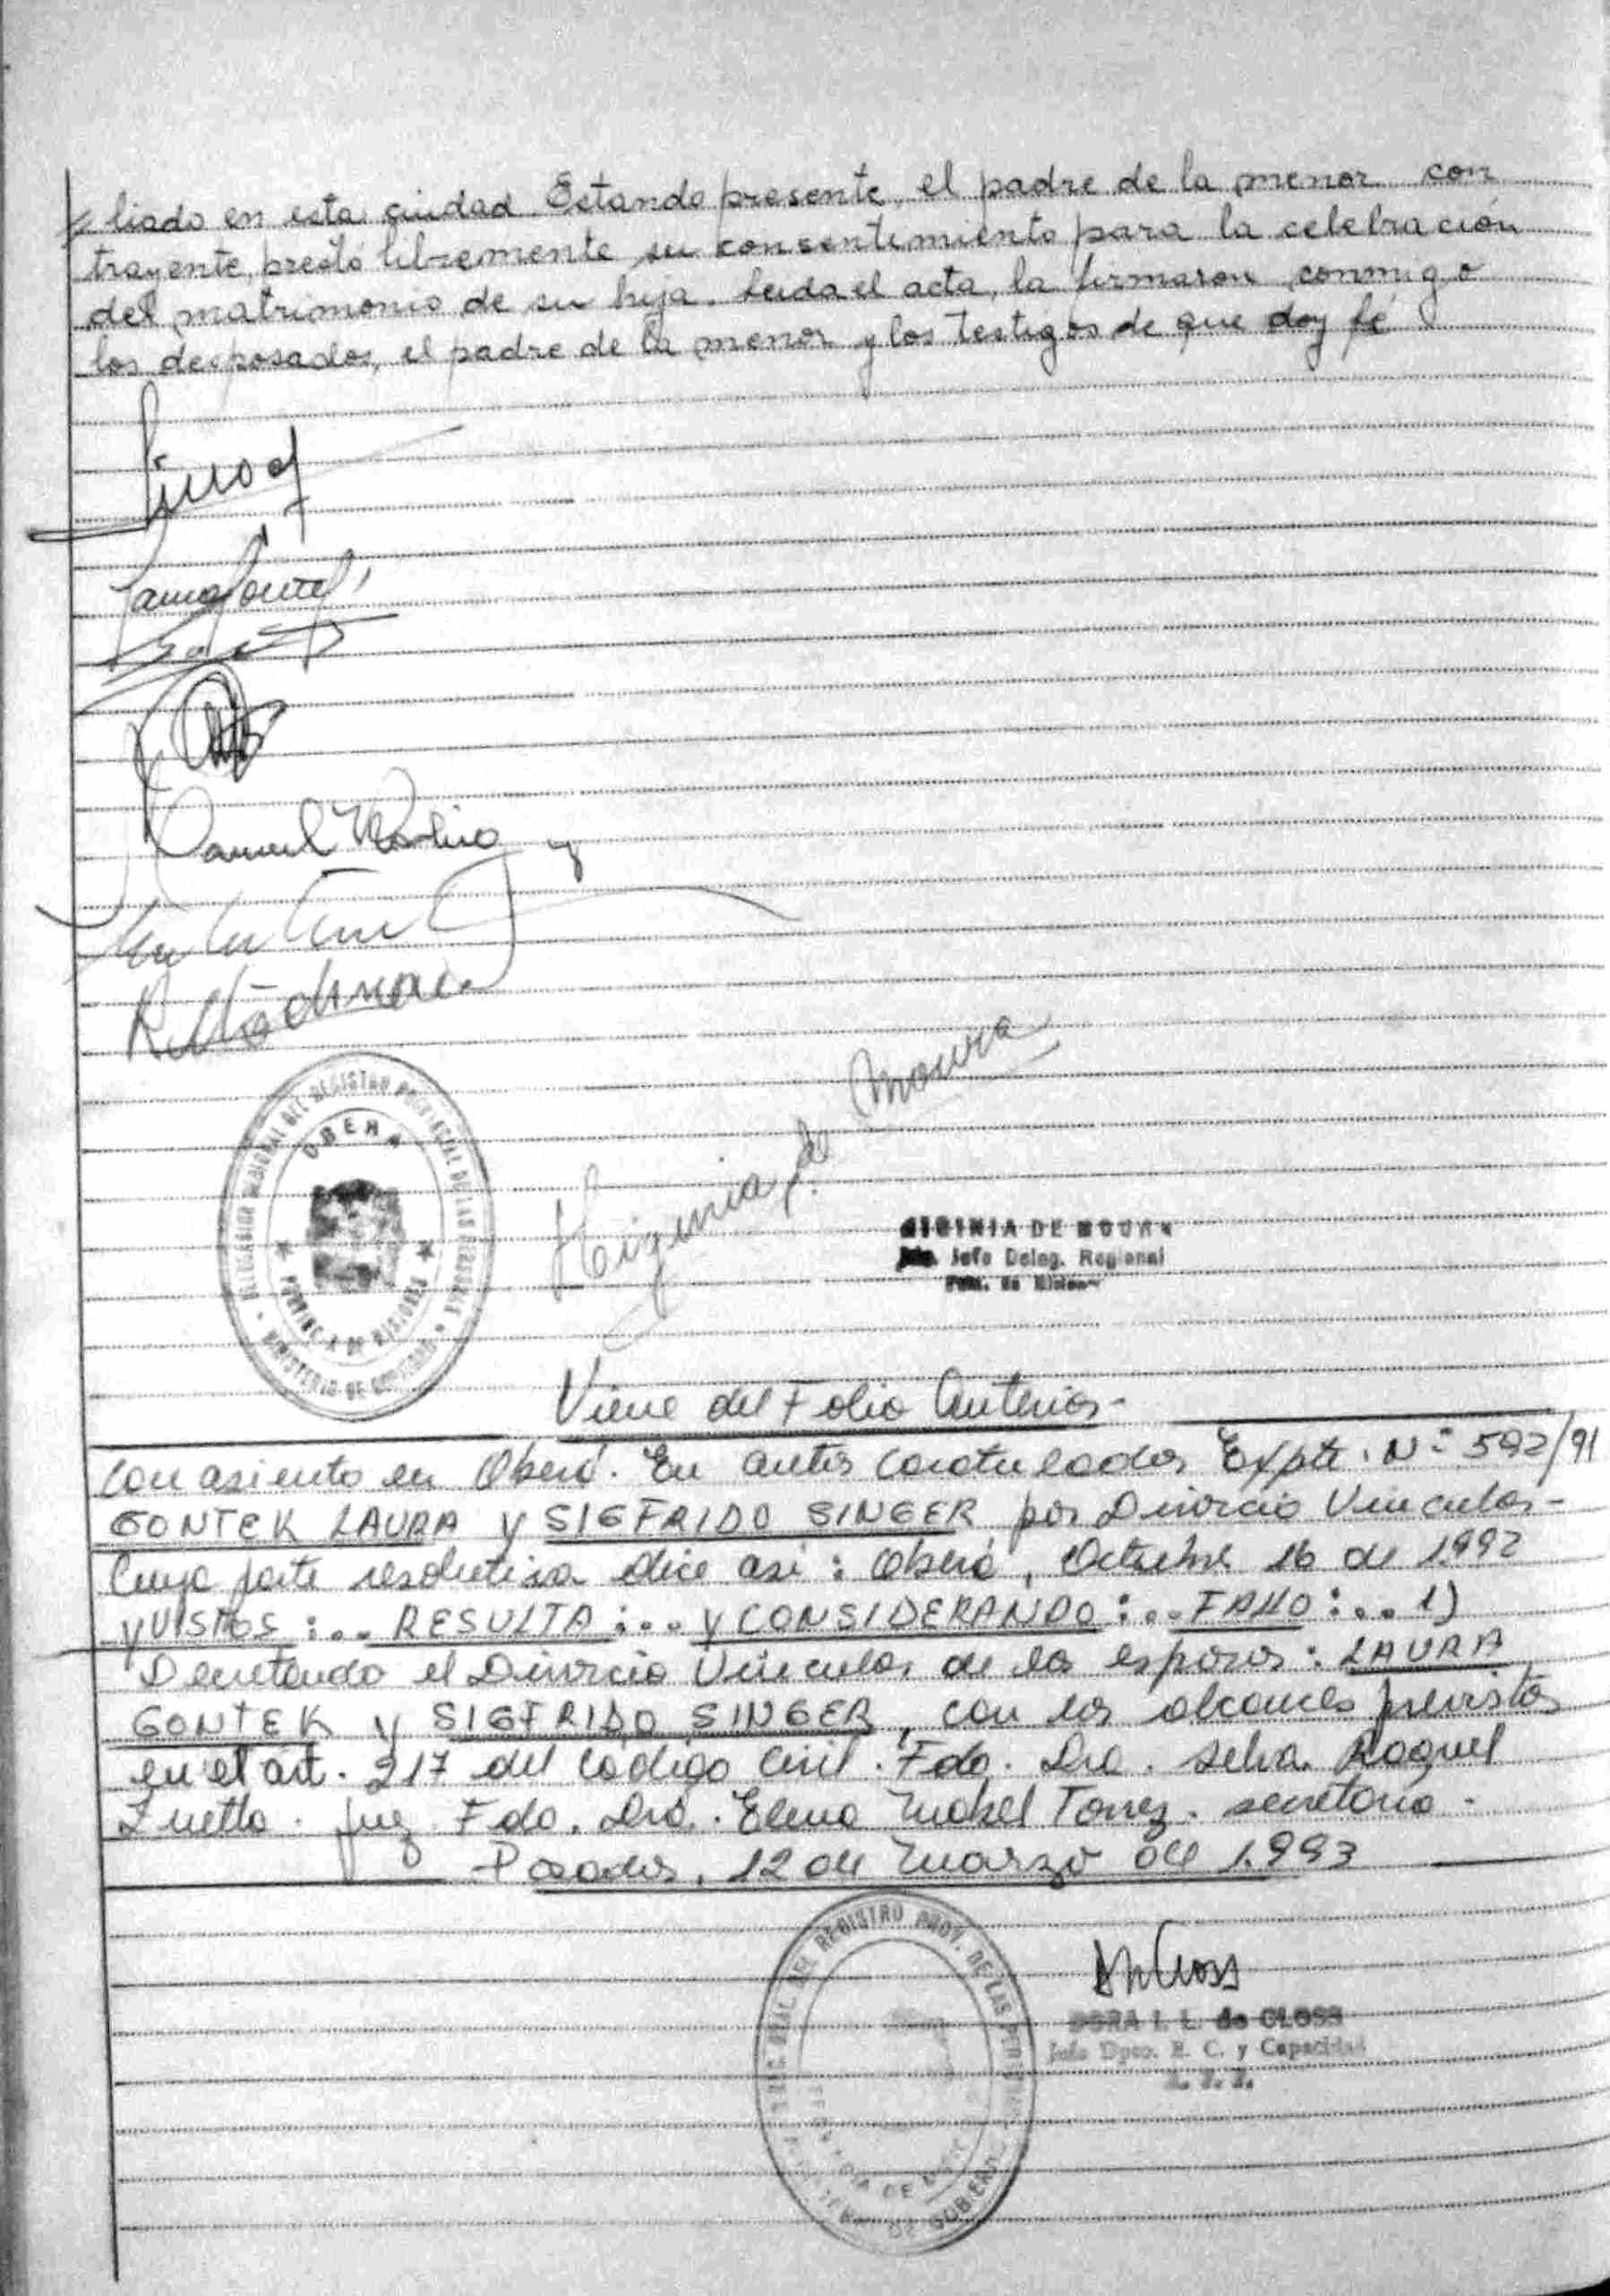 liado en esta ciudad. Estando presente, el padre de la menor con
trayente, prestó libremente su consentimiento para la celebración
del matrimonio de su hija. Leida el acta, la firmaron conmigo
los desposados, el padre de la menor y los testigos de que doy fé
DELEGACION REGIONAL DEL REGISTRO PROVINCIAL DE LAS PERSONAS
OBERA
PROVINCIA DE MISIONES
MINISTERIO DE GOBIERNO
Higinia de Moura
HIGINIA DE MOURA
Jefe Deleg. Regional
Viene del Folio Anterior-
con asiento en Oberá. En autos caratulados Expte. Nº 592/91
GONTEK LAURA y SIGFRIDO SINGER por Divorcio Vincular-
Cuya parte resolutiva dice asi: Oberá, Octubre 16 de 1992
Y VISTOS:... RESULTA:... Y CONSIDERANDO:... FALLO:... 1)
Decretando el Divorcio Vincular de los esposos: LAURA
GONTEK y SIGFRIDO SINGER, con los alcances previstos
en el art. 217 del código civil. Fdo. Dra. Selva Raquel
Juez Fdo. Dra. Elena Mabel Torrez. secretaria.
Posadas, 12 de Marzo de 1.993
GRAL. DEL REGISTRO PROV. DE LAS PERSONAS
DE GOBIERNO
DORA I. L. de CLOSS
Jefe Dpto. E. C. y Capacidad